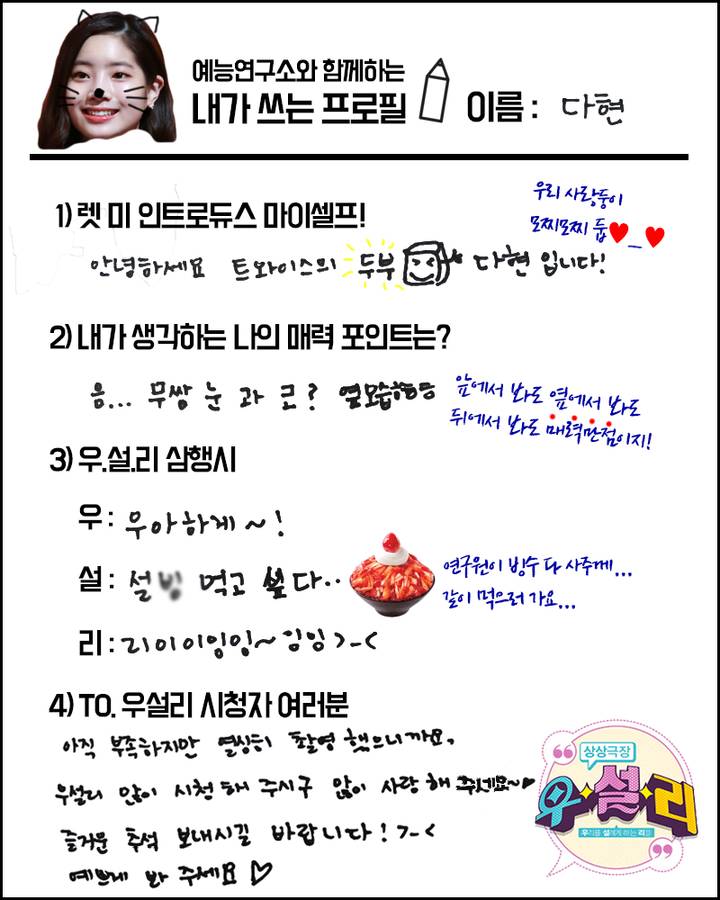 예능연구소와 함께하는
내가 쓰는 프로필 이름 : 다현
1) 렛 미 인트로듀스 마이셀프!
우리 사랑둥이
모찌모찌 둡♥_♥
안녕하세요 트와이스의 두부 다현 입니다!
2) 내가 생각하는 나의 매력 포인트는?
음... 무쌍 눈 과 코? 옆모습ㅎㅎ
앞에서 봐도 옆에서 봐도
뒤에서 봐도 매력만점이지!
3) 우.설.리 삼행시
우 : 우아하게~!
설 : 설빙 먹고 싶다..
연구원이 빙수 다 사주께...
같이 먹으러 가요...
리 : 리이이잉잉~ 잉잉>_<
4) TO. 우설리 시청자 여러분
아직 부족하지만 열심히 촬영 했으니까요,
우설리 많이 시청해 주시구 많이 사랑해 주세요~♥
즐거운 추석 보내시길 바랍니다! >_<
예쁘게 봐 주세요♡
상상극장
우설리
우리를 설레게 하는 리플